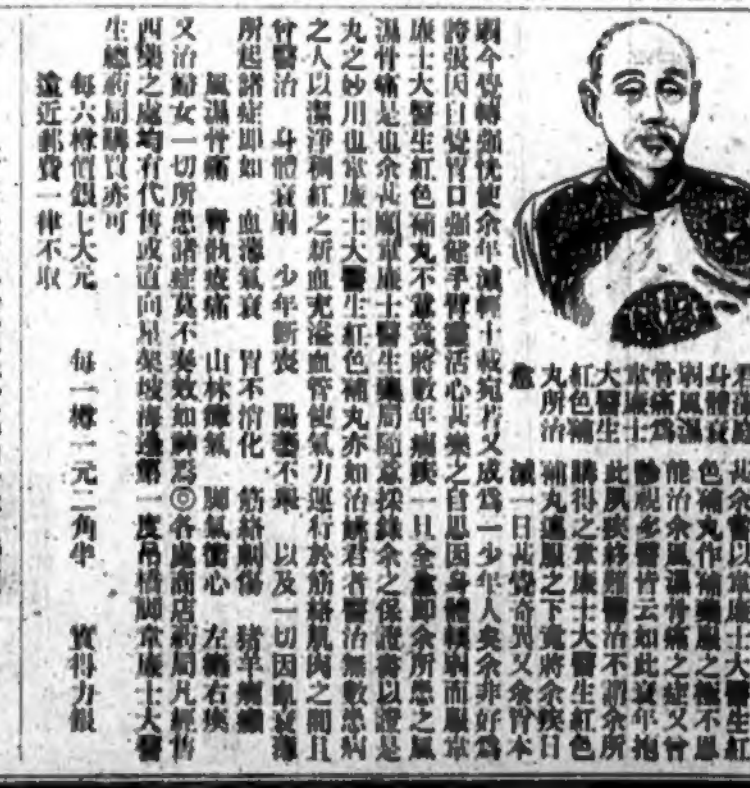 身體衰
弱風濕
骨痛為
韋廉士
大醫生
紅色補
丸所治
愈
甚余嘗以韋廉士大醫生紅
色補丸作補藥服之極不思
能治余風濕骨痛之症又曾
診視多醫皆云如此衰年抱
此夙疾終難醫治不謂余所
購得之韋廉士大醫生紅色
補丸連服之下竟將余疾日
減一日甚覺奇異又余胃本
弱今覺轉強恍使余年減輕十載宛若又成為一少年人矣余非好為
誇張因自覺胃口強健手臂靈活心甚樂之自思因身體軟弱而服韋
廉士大醫生紅色補丸不意竟將數年痼疾一旦全愈即余所患之風
濕骨痛是也余甚願韋廉士醫生藥局隨意採錄余之保證書以證是
丸之妙用也韋廉士大醫生紅色補丸亦如治麟君者醫治無數患病
之人以潔淨稠紅之新血充溢血管使氣力運行於筋絡肌肉之間且
曾醫治 身體衰弱 少年斲喪 陽萎不舉 以及一切因血衰薄
所起諸症即如 血薄氣衰 胃不消化 筋絡刺傷
風濕骨痛 臀骫痠痛 山林瘴氣 腳氣衝心 左癱右瘓
又治婦女一切所患諸症莫不奏效如神焉◎各處商店藥局凡經售
西藥之處均有代售或直向星架坡海邊第一度吊橋腳韋廉士大醫
生總藥局購買亦可
每六樽價銀七大元 每一樽一元二角半 實得力銀
遠近郵費一律不取